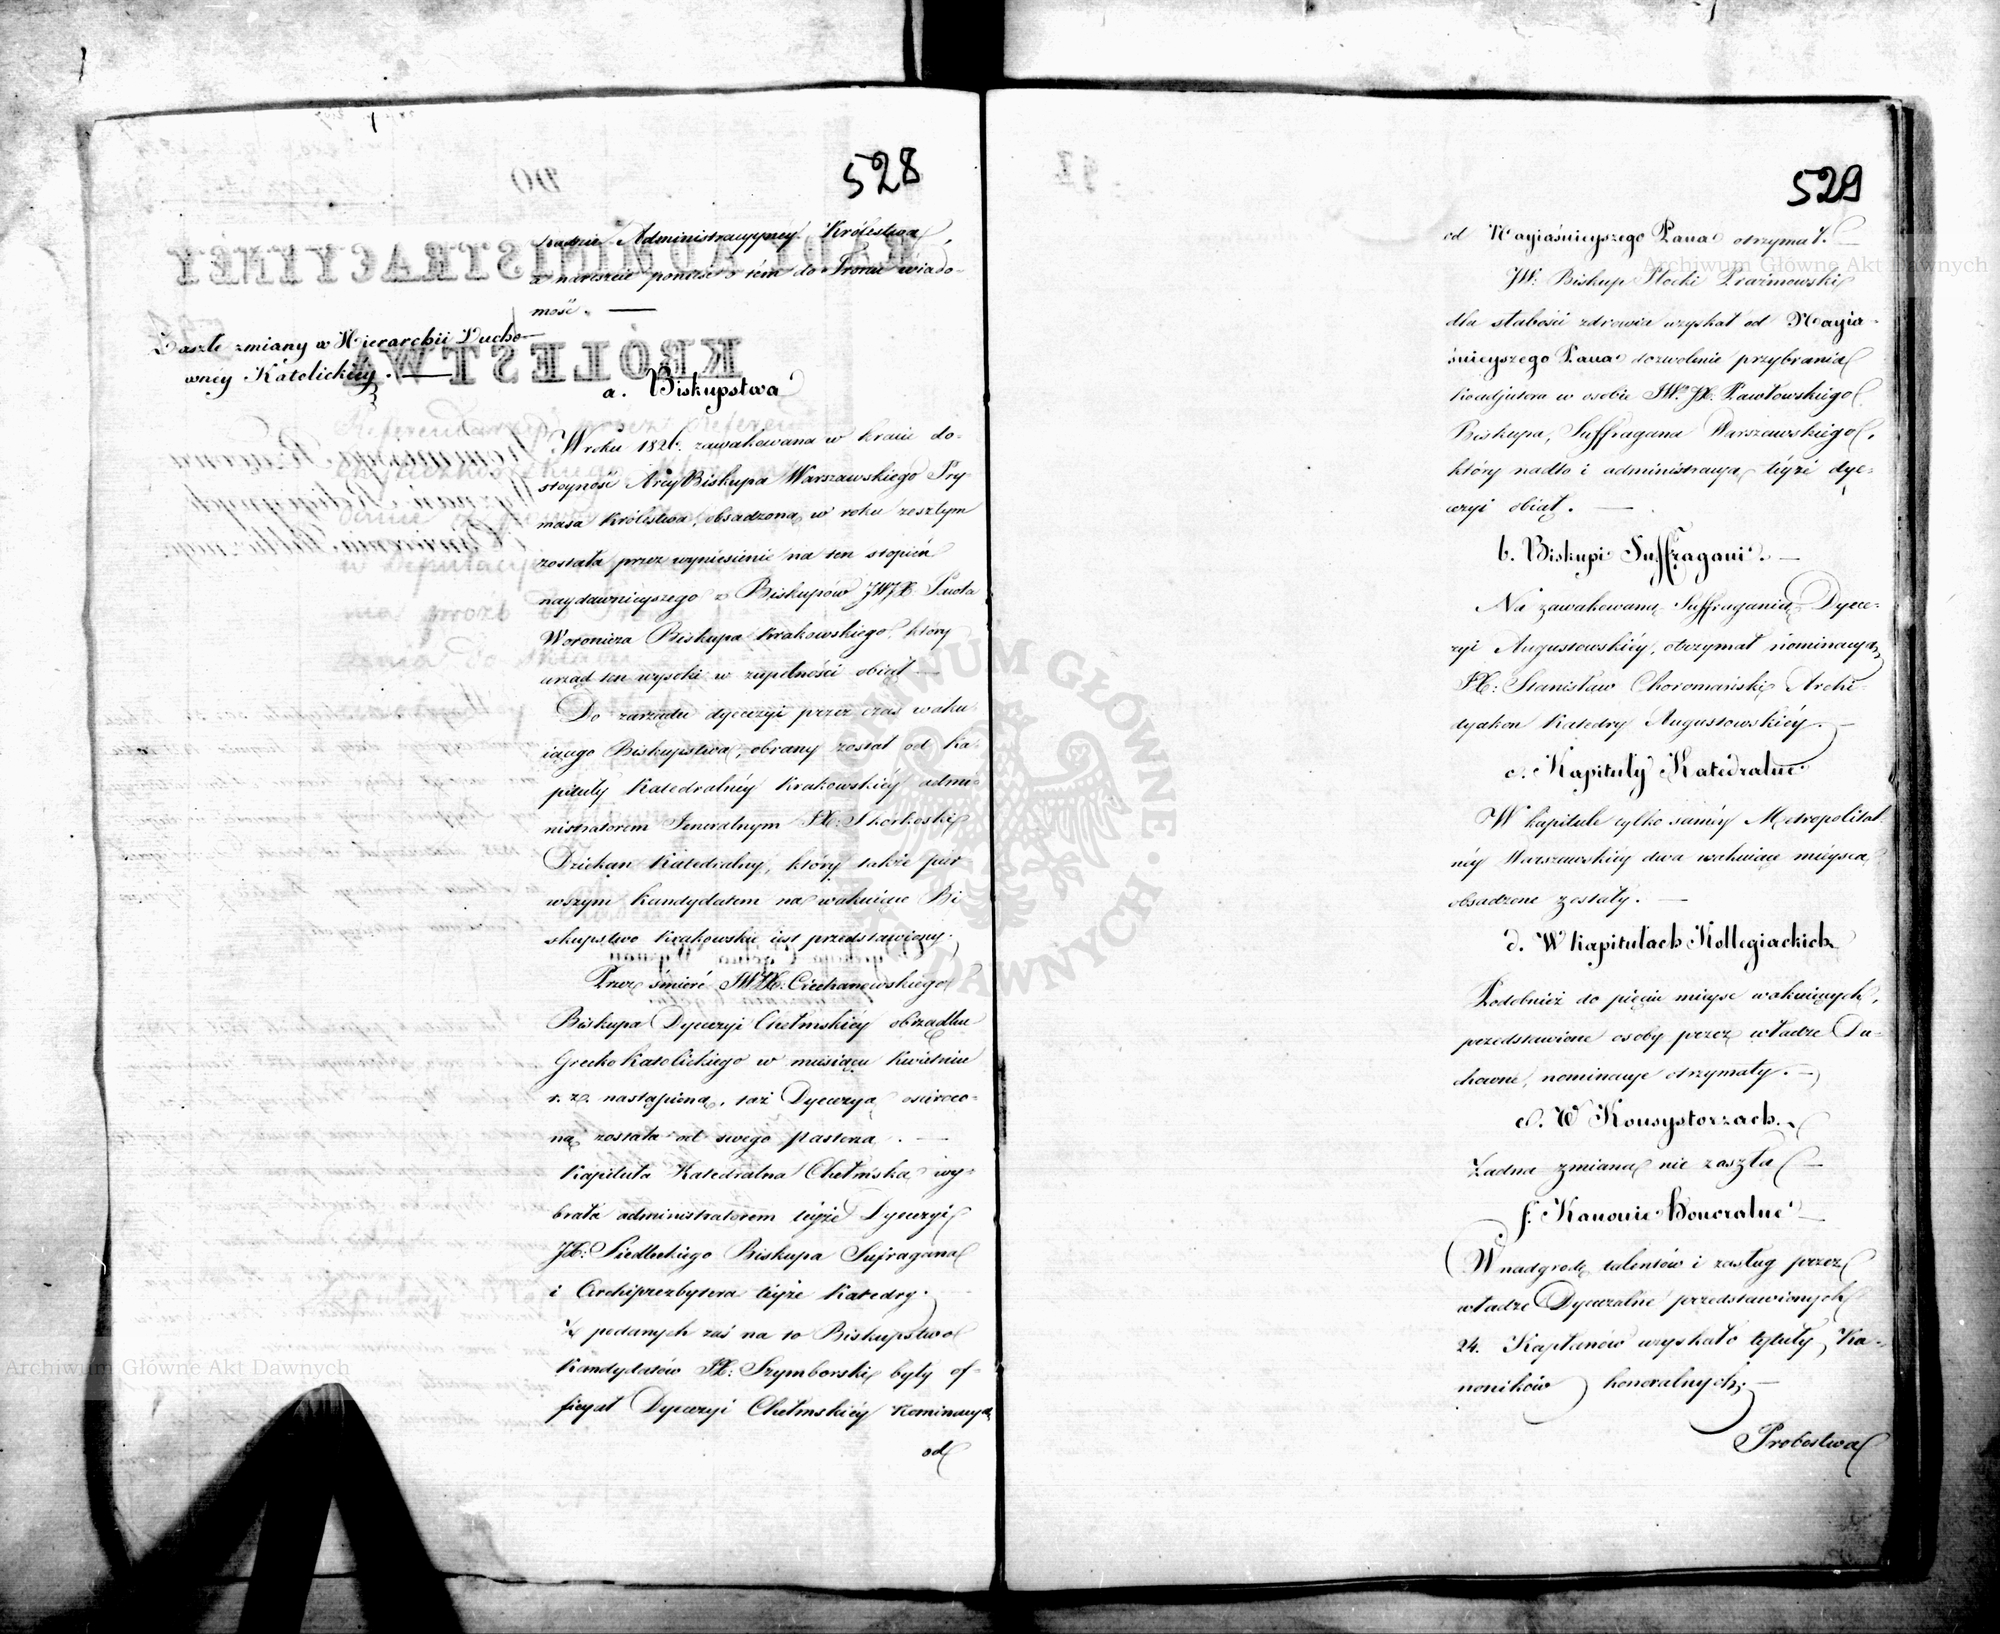 528
Radzie Administracyyney Królestwa,
a nareszcie ponieść o tém do Tronu wiado-
mość. —
Zaszłe zmiany w Hierarchii Ducho-
wnéy Katolickiéy. —
a. Biskupstwa
W roku 1826. zawakowana w kraiu do-
stoyność ArcyBiskupa Warszawskiego Pry-
masa Królestwa, obsadzoną w roku zeszłym
została przez wyniesienie na ten stopień
naydawnieyszego z Biskupów JWJX. Pawła
Woronicza Biskupa Krakowskiego, który
urząd ten wysoki w zupełności obiął —
Do zarządu dyecezyi przez czas waku-
iącego Biskupstwa, obrany został od Ka-
pituły Katedralnéy Krakowskiéy admi-
nistratorem Jeneralnym JX: Skorkoski
Dziekan Katedralny, który także pier
wszym kandydatem na wakuiące Bi
skupstwo Krakowskie iest przedstawiony.
Przez śmierć JWJX: Ciechanowskiego
Biskupa Dyecezyi Chełmskiéy obrządku
Grecko Katolickiego w miesiącu Kwietniu
r. z. nastąpioną, taż Dyecezya osieroco-
ną została od swego pasterza. —
Kapituła Katedralna Chełmska wy-
brała administratorem teyże Dyecezyi
JX: Siedleckiego Biskupa Sufragana
i Archiprezbytera teyże Katedry.
Z podanych zaś na to Biskupstwo
kandydatów JX: Szymborski były of-
ficyał Dyecezyi Chełmskiéy nominacyą
od
529
od Nayiaśnieyszego Pana otrzymał. —
JW: Biskup Płocki Prażmowski
dla słabości zdrowia uzyskał od Nayia-
śnieyszego Pana dozwolenie przybrania
Koadjutora w osobie JW. JX. Pawłowskiego
Biskupa, Suffragana Warszawskiego,
który nadto i administracyą teyże dye-
cezyi obiął. —
b. Biskupi Suffragani. —
Na zawakowaną Suffraganią Dyece-
zyi Augustowskiéy, otrzymał nominacyą
JX: Stanisław Choromański Archi-
dyakon Katedry Augustowskiéy. —
c. Kapituły Katedralne
W kapitule tylko saméy Metropolital
néy Warszawskiéy dwa wakuiące mieysca
obsadzone zostały. —
d. W Kapitułach Kollegiackich
Podobnież do pięciu mieysc wakuiących,
przedstawione osoby przez władze Du-
chowne, nominacye otrzymały. —
e. W Konsystorzach.
Żadna zmiana nie zaszła —
f. Kanonie honoralne —
W nadgrodę talentów i zasług przez
władze Dyecezalne przedstawionych
24. Kapłanów uzyskało tytuły Ka-
noników honoralnych; —
Probostwa